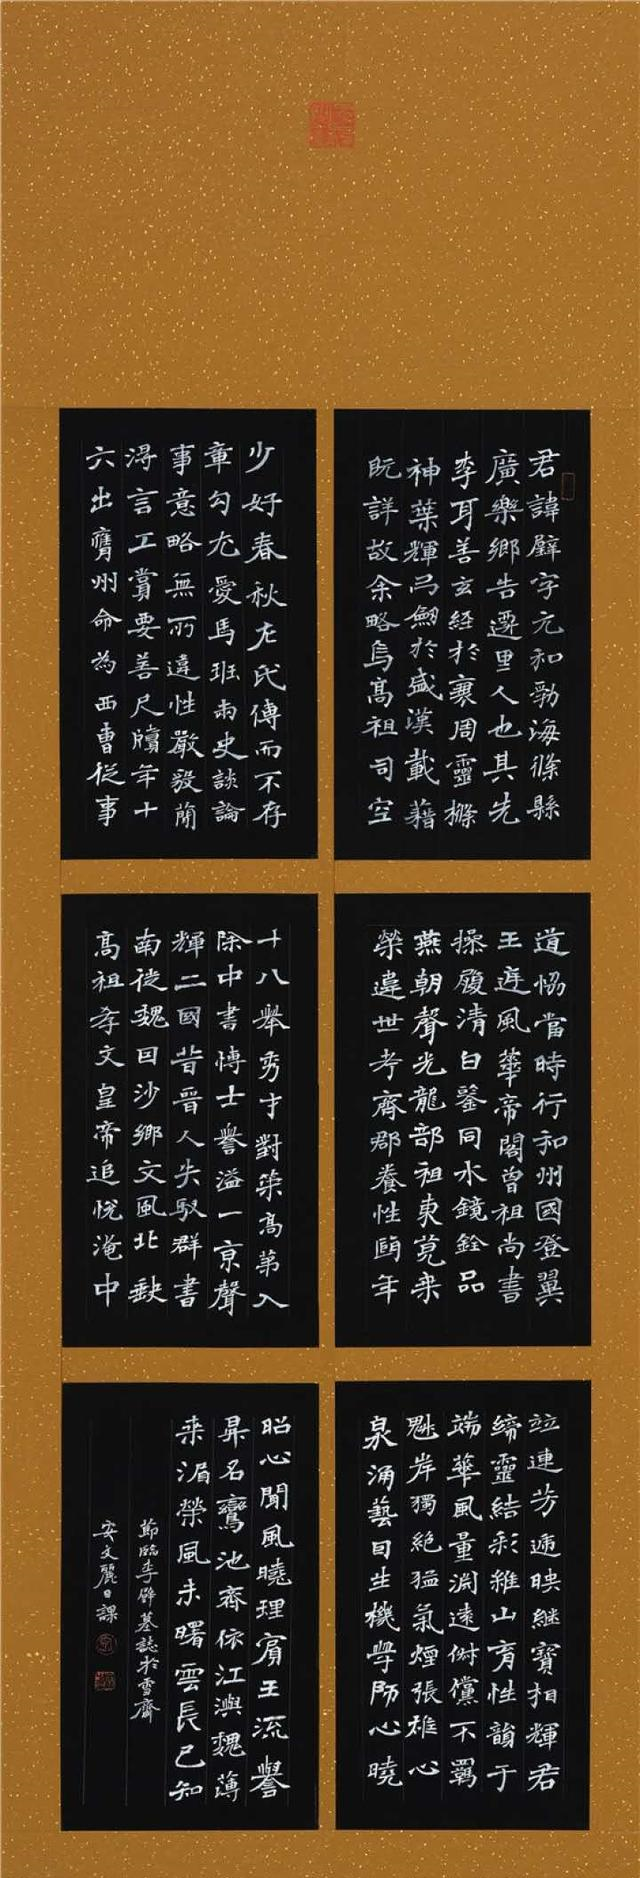 君諱璧字元和勃海條縣
廣樂鄉吉遷里人也其先
李耳善玄經於襄周靈櫟
神葉輝弓劍於盛漢載籍
既詳故余略焉高祖司空
道協當時行和州國登翼
王庭風華帝閣曾祖尚書
操履清白鑒同水鏡銓品
燕朝聲光龍部祖東莞秉
榮違世考齊郡養性頤年
竝連芳遞映繼寶相輝君
締靈結彩維山育性韻于
端華風量淵遠俶儻不羈
魁岸獨絕猛氣煙張雄心
泉涌藝因生機學師心曉
少好春秋左氏傳而不存
章句尤愛馬班兩史談論
事意略無所違性嚴毅簡
得言工賞要善尺牘年十
六出膺州命為西曹從事
十八舉秀才對策高第入
除中書博士譽溢一京聲
輝二國昔晉人失馭群書
南徙魏因沙鄉文風北缺
高祖孝文皇帝追悅淹中
昭心聞風曉理賓王流譽
昇名鸞池齊依江澳魏薄
來湄榮風未曙雲長已知
節臨李璧墓誌於雪齋
安文麗日課